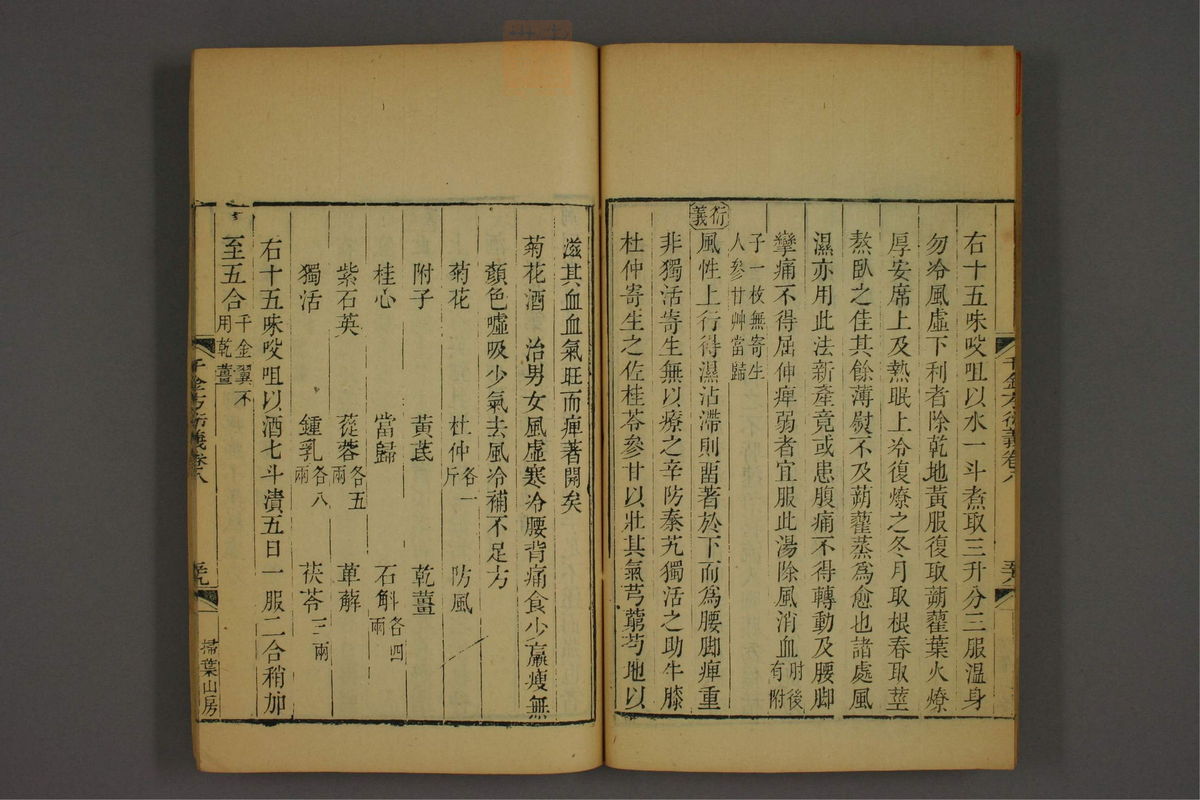 右十五味㕮咀以水一斗煮取三升分三服溫身
勿冷風虛下利者除乾地黃服復取蒴藋葉火燎
厚安席上及熱眠上冷復燎之冬月取根春取莖
熬臥之佳其餘薄熨不及蒴藋蒸為愈也諸處風
濕亦用此法新產竟或患腹痛不得轉動及腰脚
攣痛不得屈伸痺弱者宜服此湯除風消血肘後有附
子一枚無寄生人參甘艸當歸
衍義
風性上行得濕沾滯則畱著於下而為腰脚痺重
非獨活寄生無以療之辛防秦艽獨活之助牛膝
杜仲寄生之佐桂苓參甘以壯其氣芎藭芍地以
千金方衍義卷八
滋其血血氣旺而痺著開矣
菊花酒 治男女風虛寒冷腰背痛食少羸瘦無
顏色噓吸少氣去風冷補不足方
菊花 杜仲各一斤 防風
附子 黃芪 乾薑
桂心 當歸 石斛各四兩
紫石英 蓯蓉各五兩 萆薢
獨活 鍾乳各八兩 茯苓三兩
右十五味㕮咀以酒七斗漬五日一服二合稍加
至五合千金翼不用乾薑
千金方衍義卷八
掃葉山房